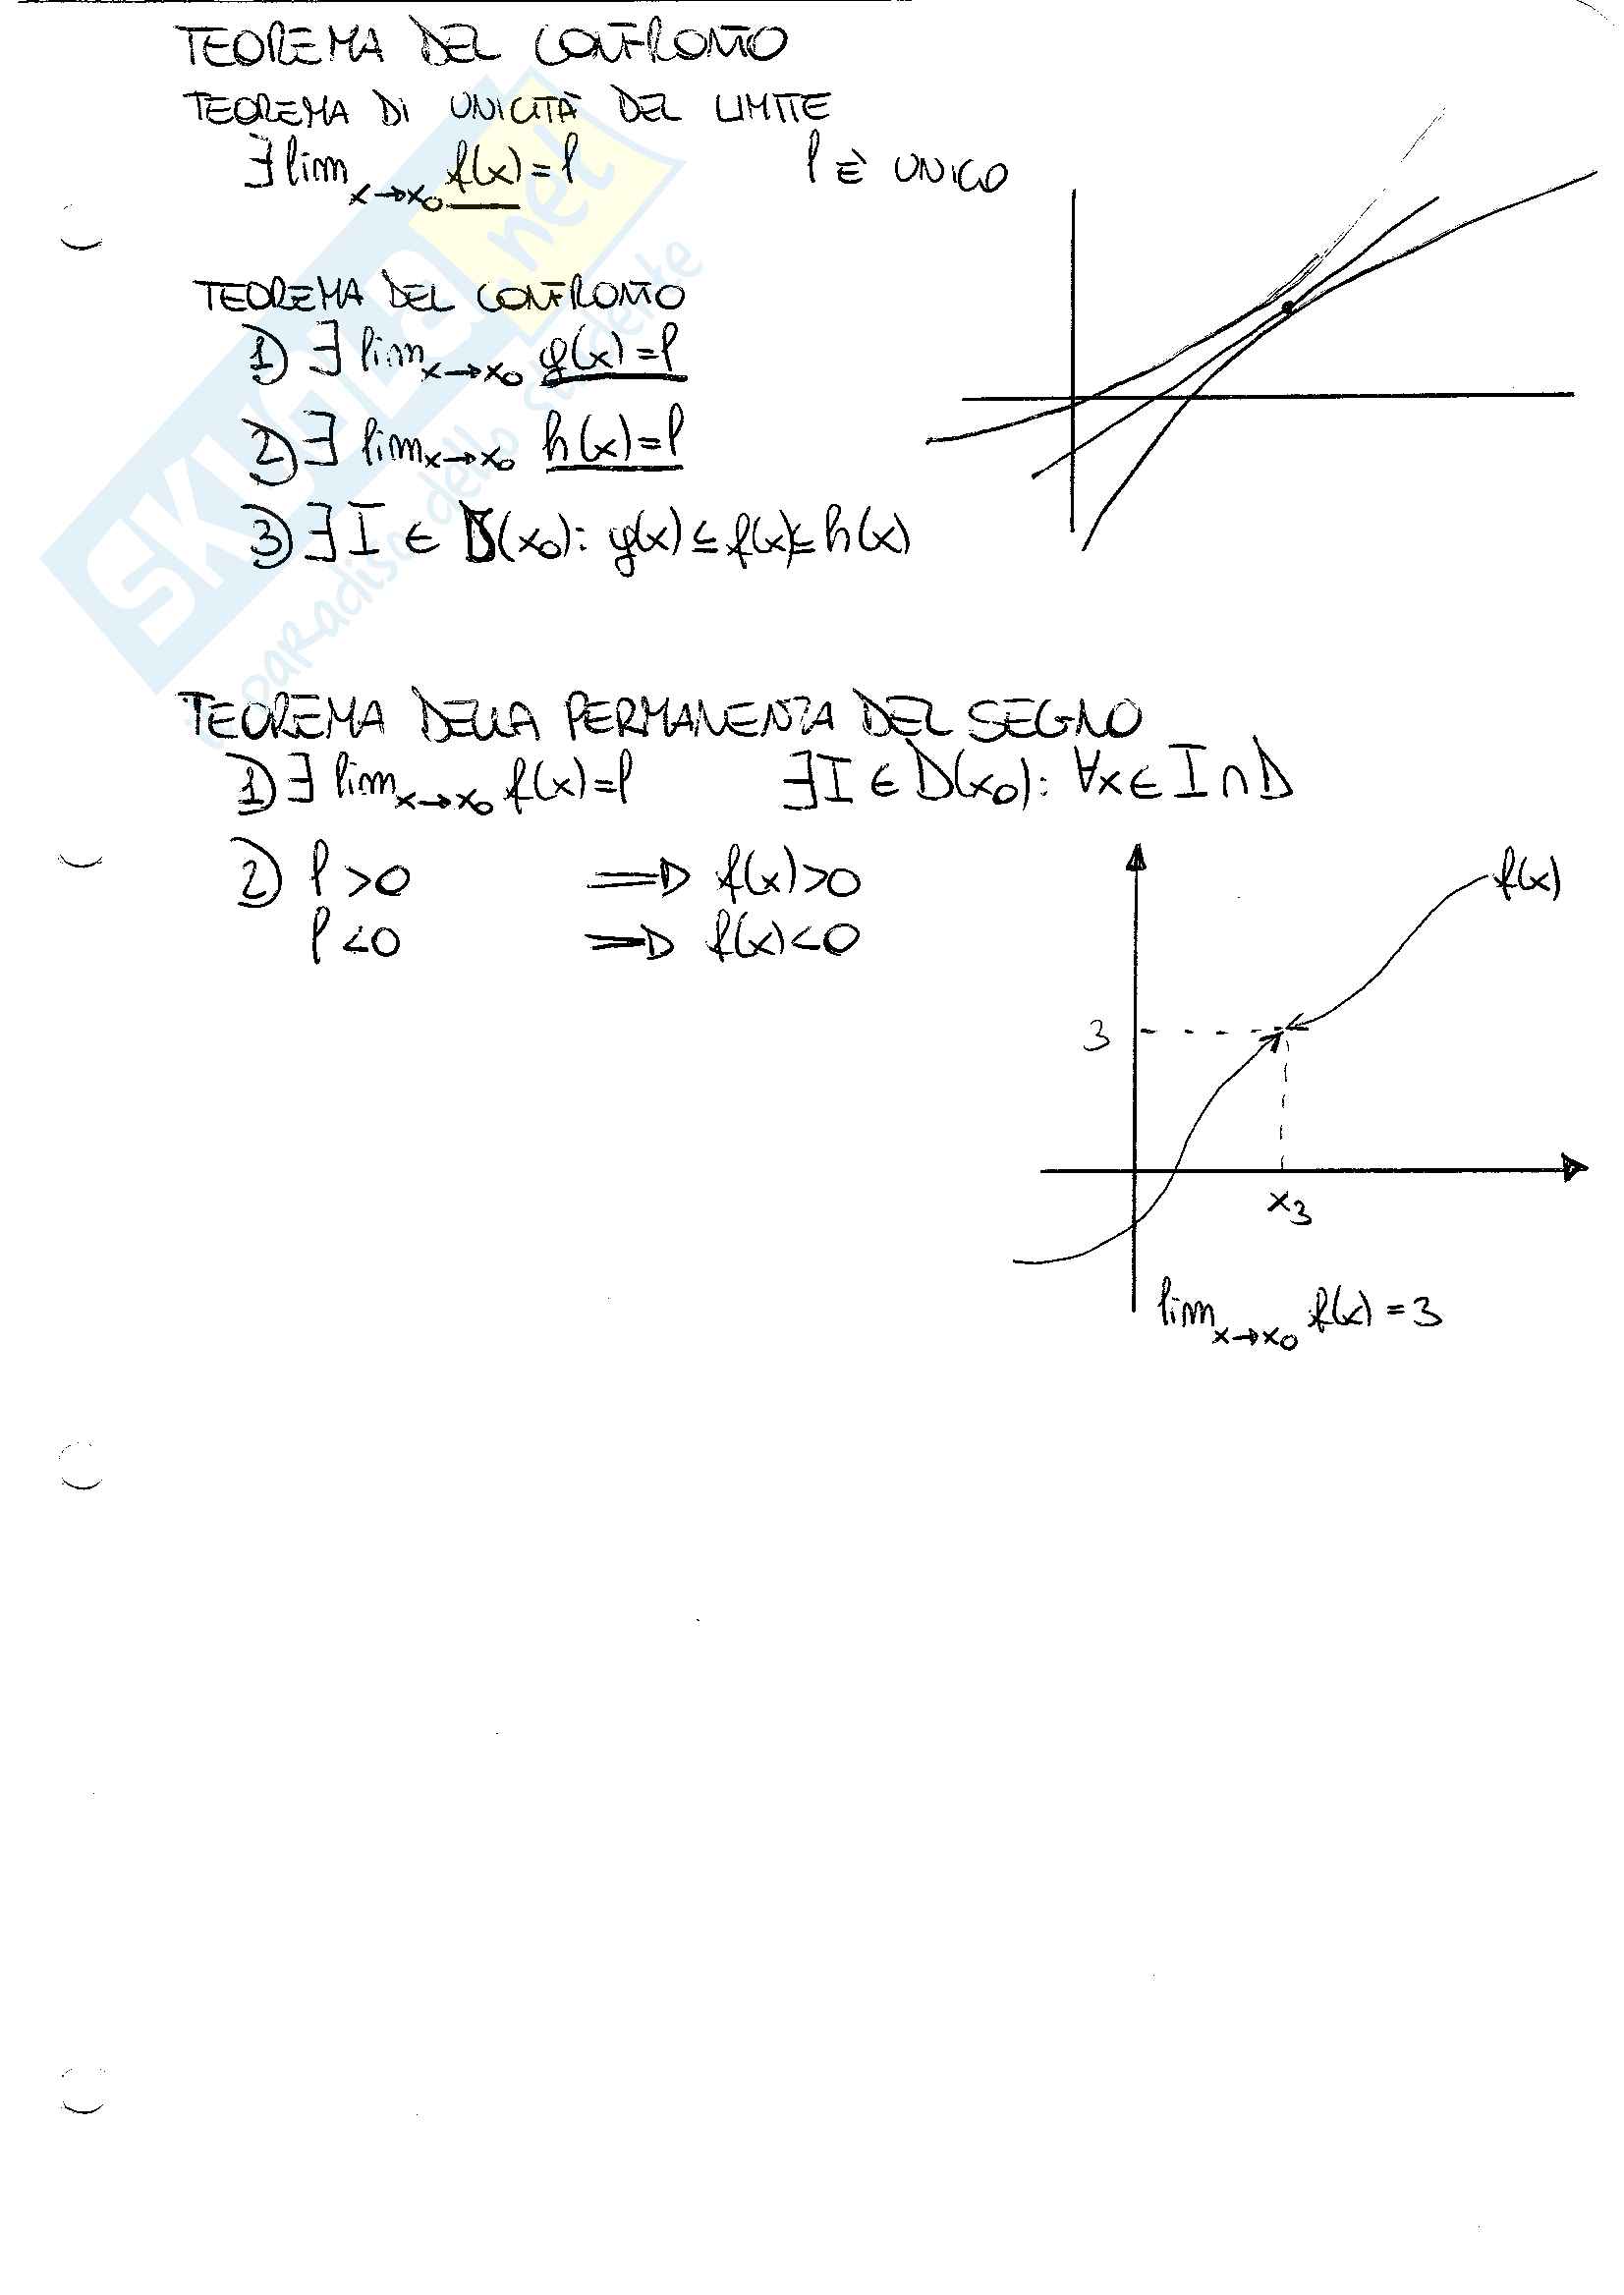 TEOREMA DEL CONFRONTO
TEOREMA DI UNICITÀ DEL LIMITE
∃ lim x→x₀ f(x) = l l È UNICO
TEOREMA DEL CONFRONTO
1) ∃ lim x→x₀ g(x) = l
2) ∃ lim x→x₀ h(x) = l
3) ∃ I ∈ D(x₀): g(x) ≤ f(x) ≤ h(x)
TEOREMA DELLA PERMANENZA DEL SEGNO
1) ∃ lim x→x₀ f(x) = l ∃ I ∈ D(x₀): ∀x ∈ I ∩ D
2) l > 0 ⇒ f(x) > 0
l < 0 ⇒ f(x) < 0
f(x)
3
x₃
lim x→x₀ f(x) = 3
SKUOLA.net
paradiso dello studente